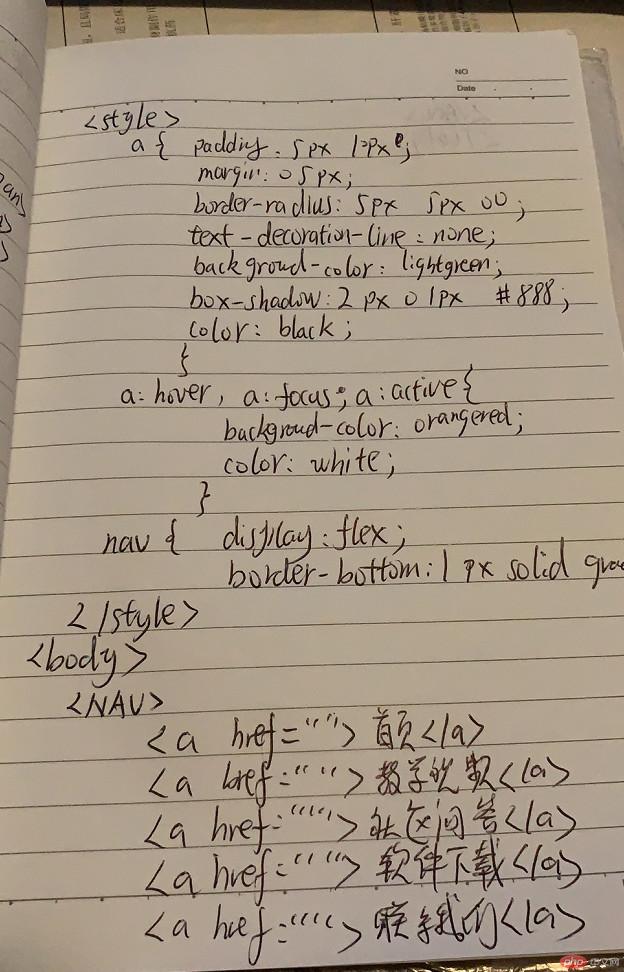 NO
Date
<style>
a { paddiy: 5px 10px;
margin: 0 5px;
border-radius: 5px 5px 00;
text-decoration-line: none;
backgroud-color: lightgreen;
box-shadow: 2px 0 1px #888;
color: black;
}
a: hover, a: focus, a: active {
backgroud-color: orangered;
color: white;
}
nav { display: flex;
border-bottom: 1px solid
</style>
<body>
<NAV>
<a href="">首页</a>
<a href="">教学视频</a>
<a href="">社区问答</a>
<a href="">软件下载</a>
<a href="">联系我们</a>
php 中文网